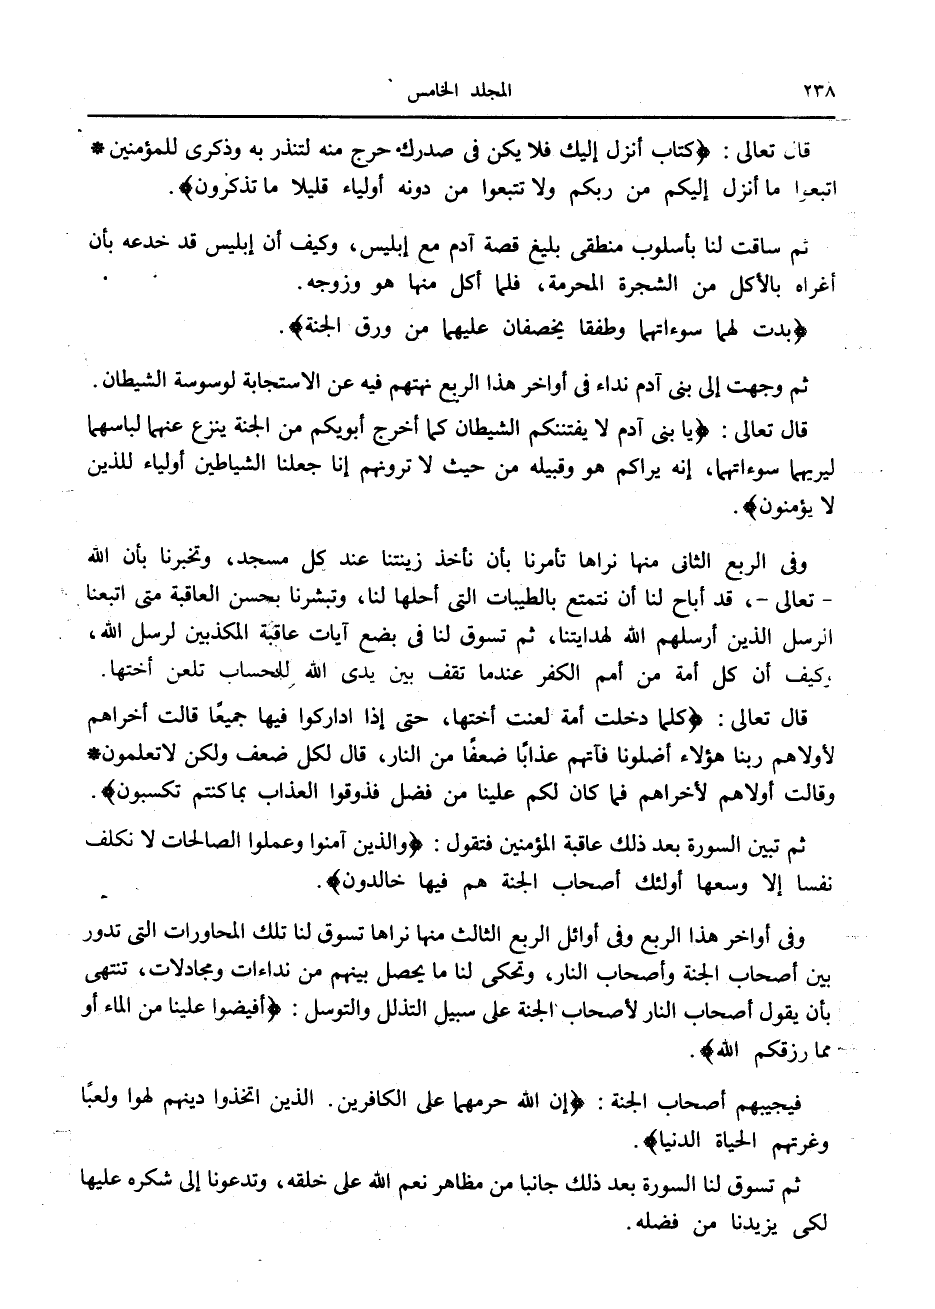 ٢٣٨
المجلد الخامس
قال تعالى : ﴿كتاب أنزل إليك فلا يكن فى صدرك حرج منه لتنذر به وذكرى للمؤمنين *
اتبعوا ما أنزل إليكم من ربكم ولا تتبعوا من دونه أولياء قليلا ما تذكرون﴾.
ثم ساقت لنا بأسلوب منطقى بليغ قصة آدم مع إبليس، وكيف أن إبليس قد خدعه بأن
أغراه بالأكل من الشجرة المحرمة، فلما أكل منها هو وزوجه.
﴿بدت لهما سوءاتهما وطفقا يخصفان عليهما من ورق الجنة﴾.
ثم وجهت إلى بنى آدم نداء فى أواخر هذا الربع نهتهم فيه عن الاستجابة لوسوسة الشيطان.
قال تعالى : ﴿يا بنى آدم لا يفتننكم الشيطان كما أخرج أبويكم من الجنة ينزع عنهما لباسهما
ليريهما سوءاتهما، إنه يراكم هو وقبيله من حيث لا ترونهم إنا جعلنا الشياطين أولياء للذين
لا يؤمنون﴾.
وفى الربع الثانى منها نراها تأمرنا بأن نأخذ زينتنا عند كل مسجد، وتخبرنا بأن الله
- تعالى -، قد أباح لنا أن نتمتع بالطيبات التى أحلها لنا، وتبشرنا بحسن العاقبة متى اتبعنا
الرسل الذين أرسلهم الله لهدايتنا، ثم تسوق لنا فى بضع آيات عاقبة المكذبين لرسل الله،
وكيف أن كل أمة من أمم الكفر عندما تقف بين يدى الله للحساب تلعن أختها.
قال تعالى : ﴿كلما دخلت أمة لعنت أختها، حتى إذا اداركوا فيها جميعًا قالت أخراهم
لأولاهم ربنا هؤلاء أضلونا فآتهم عذابًا ضعفًا من النار، قال لكل ضعف ولكن لاتعلمون*
وقالت أولاهم لأخراهم فما كان لكم علينا من فضل فذوقوا العذاب بما كنتم تكسبون﴾.
ثم تبين السورة بعد ذلك عاقبة المؤمنين فتقول : ﴿والذين آمنوا وعملوا الصالحات لا نكلف
نفسا إلا وسعها أولئك أصحاب الجنة هم فيها خالدون﴾.
وفى أواخر هذا الربع وفى أوائل الربع الثالث منها نراها تسوق لنا تلك المحاورات التى تدور
بين أصحاب الجنة وأصحاب النار، وتحكى لنا ما يحصل بينهم من نداءات ومجادلات، تنتهى
بأن يقول أصحاب النار لأصحاب الجنة على سبيل التذلل والتوسل : ﴿أفيضوا علينا من الماء أو
مما رزقكم الله﴾.
فيجيبهم أصحاب الجنة : ﴿إن الله حرمهما على الكافرين. الذين اتخذوا دينهم لهوا ولعبًا
وغرتهم الحياة الدنيا﴾.
ثم تسوق لنا السورة بعد ذلك جانبا من مظاهر نعم الله على خلقه، وتدعونا إلى شكره عليها
لكى يزيدنا من فضله.